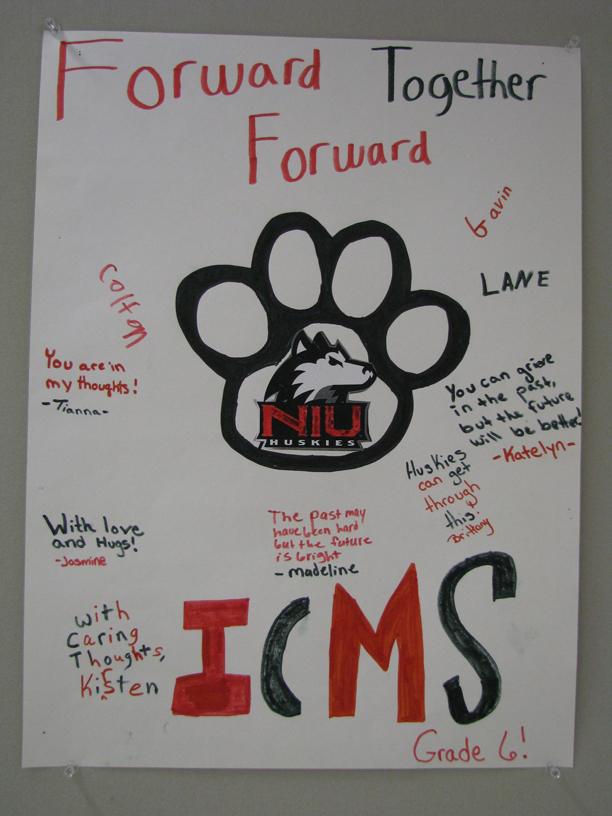 Forward Together
Forward
Gavin
LANE
Colton
You are in
my thoughts!
-Tianna-
You can grieve
in the past,
but the future
will be better!
-Katelyn-
NIU
HUSKIES
Huskies
can get
through
this!
Brittany
With love
and Hugs!
-Jasmine
The past may
have been hard
but the future
is bright
- madeline
with
Caring
Thoughts,
Kirsten
ICMS
Grade 6!